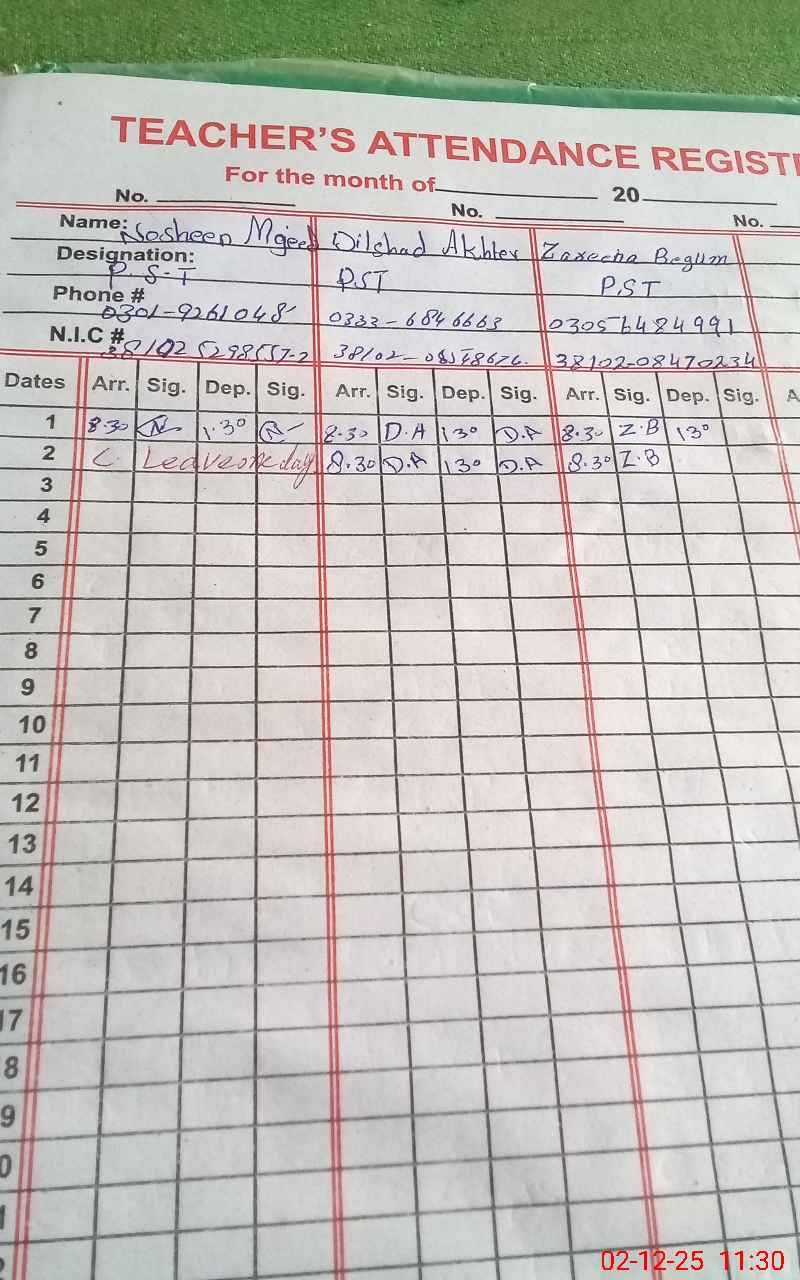 TEACHER'S ATTENDANCE REGIST
For the month of 20
No. No. No.
Name: Nosheen Mjeed Dilshad Akhter Zareena Begum
Designation: P.S.T PST P.ST
Phone # 0301-9261048 0333-6846663 03056484991
N.I.C # 38102-08470234
Dates Arr. Sig. Dep. Sig. Arr. Sig. Dep. Sig. Arr. Sig. Dep. Sig. A
1 8.30 1.30 8.30 D.A 130 D.A 8.30 Z.B 130
2 C. Leave one day 8.30 D.A 130 D.A 8.30 Z.B
3
4
5
6
7
8
9
10
11
12
13
14
15
16
17
8
9
0
02-12-25 11:30